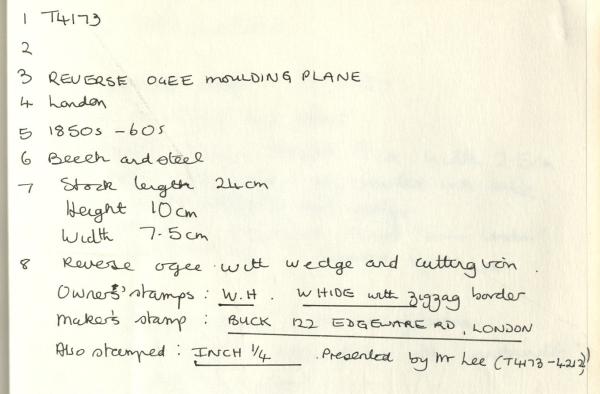 1 T4173
2
3 REVERSE OGEE MOULDING PLANE
4 London
5 1850s - 60s
6 Beech and steel
7 Stock length 24cm
Height 10cm
Width 7.5cm
8 Reverse ogee with wedge and cutting iron.
Owners' stamps : W.H . W HIDE with zigzag border
Maker's stamp : BUCK 122 EDGEWARE RD, LONDON
Also stamped : INCH 1/4 . Presented by Mr Lee (T4173-4212)